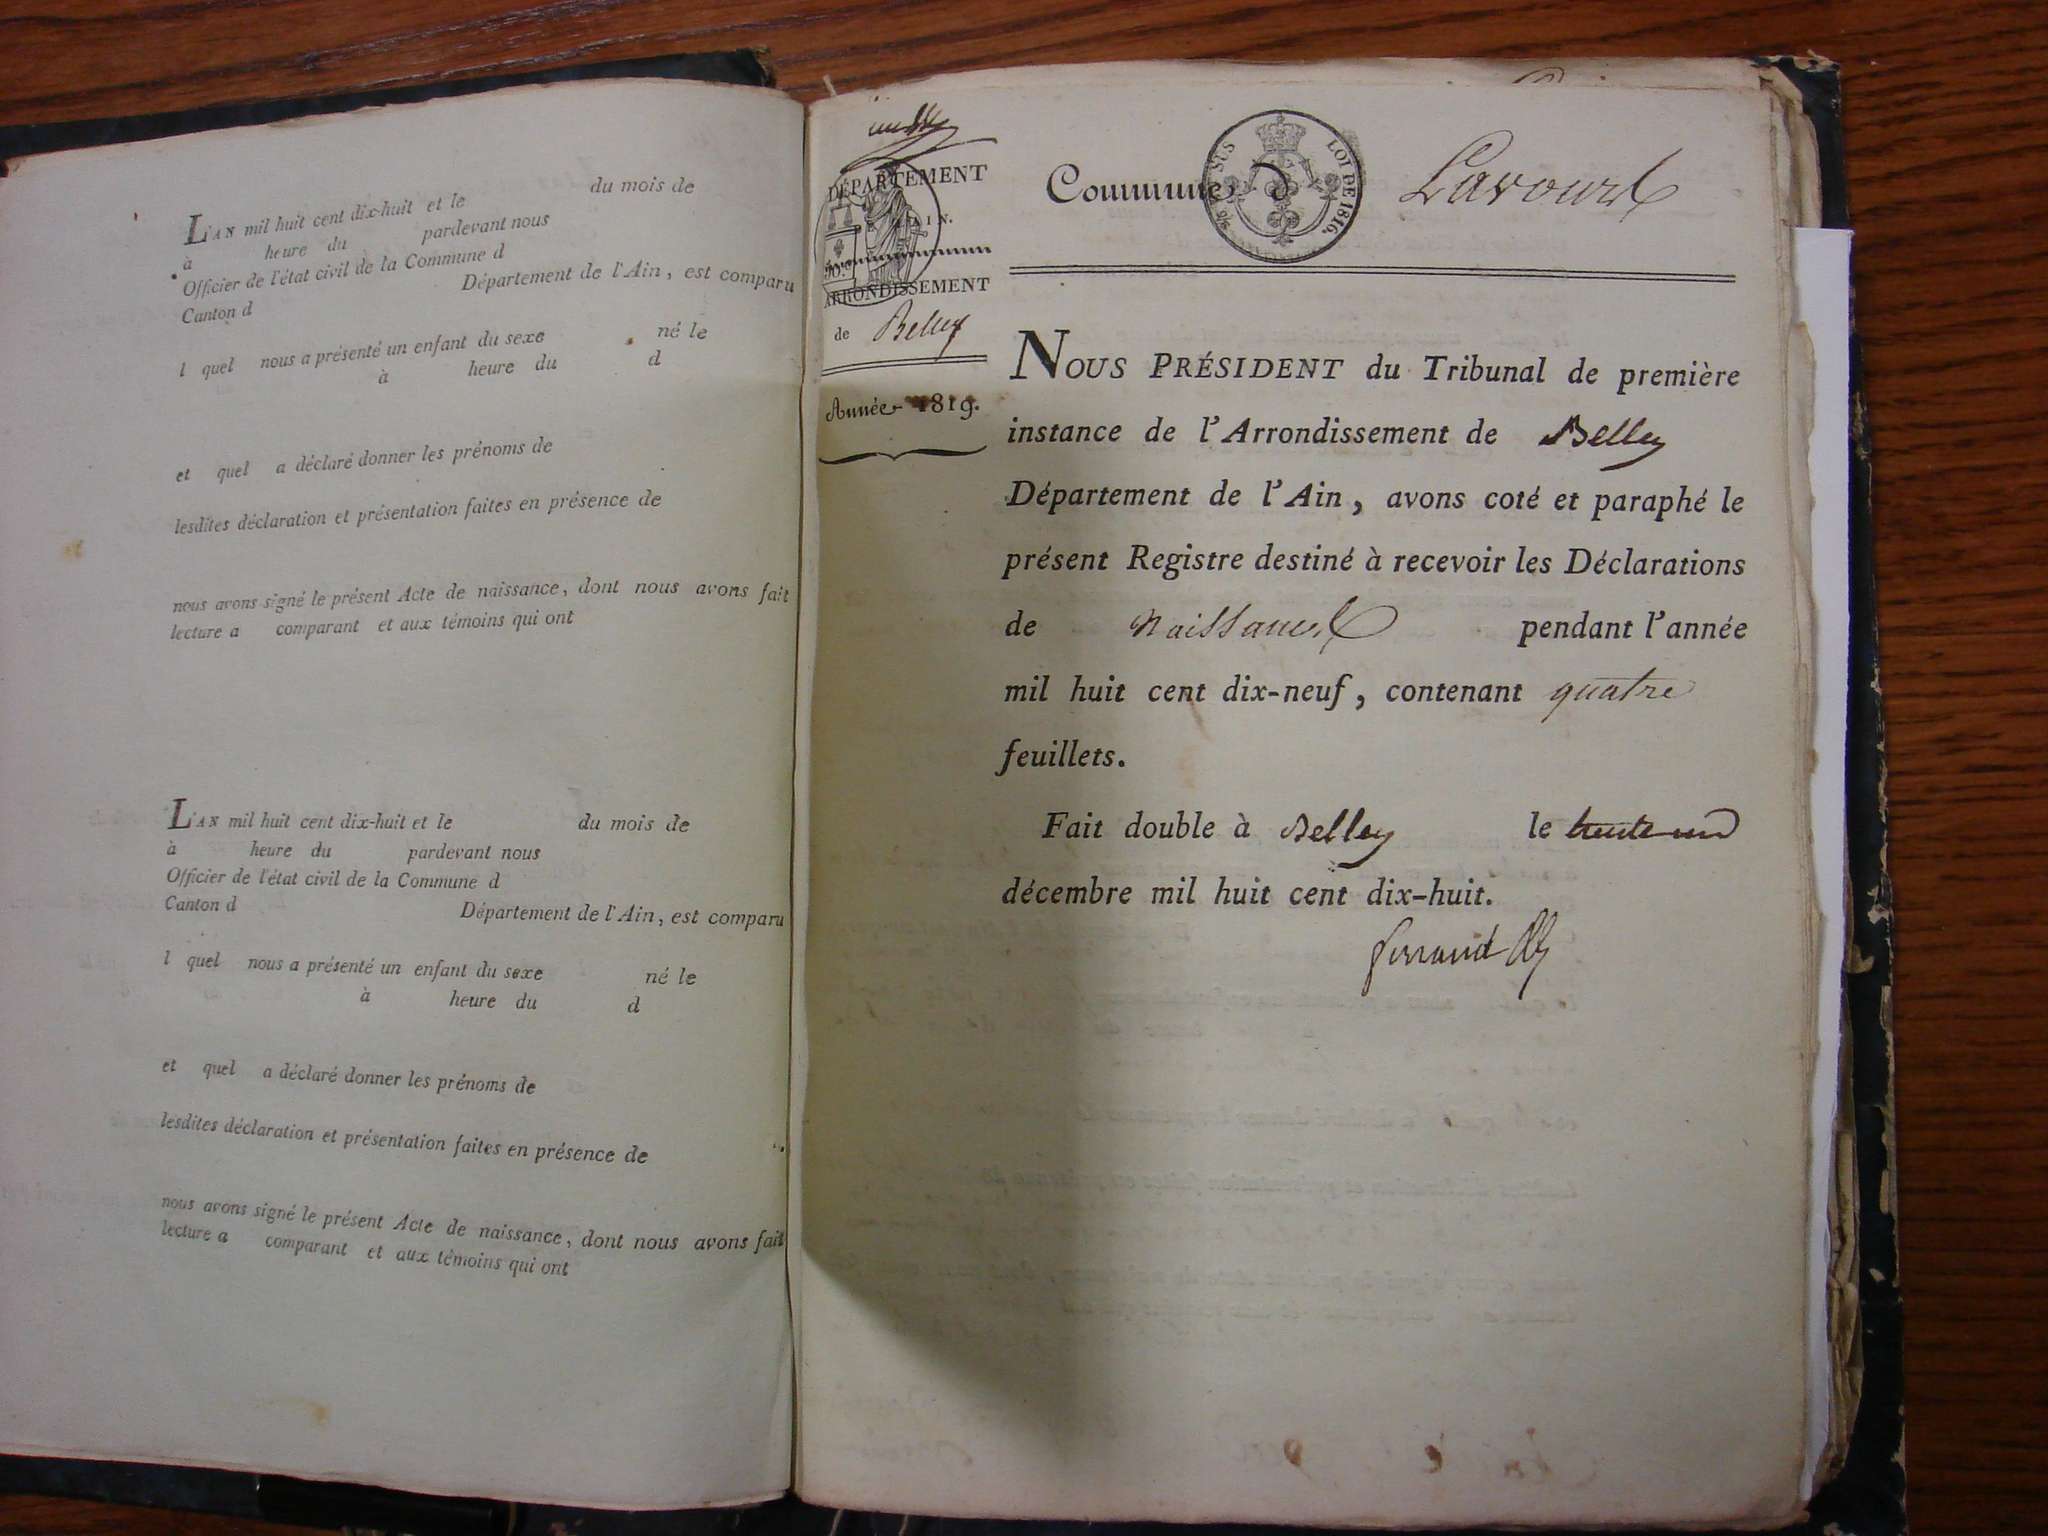 L'AN mil huit cent dix-huit et le du mois de
à heure du pardevant nous
Officier de l'état civil de la Commune d
Canton d Département de l'Ain, est comparu
l quel nous a présenté un enfant du sexe né le
à heure du d
et quel a déclaré donner les prénoms de
lesdites déclaration et présentation faites en présence de
nous avons signé le présent Acte de naissance, dont nous avons fait
lecture a comparant et aux témoins qui ont
L'AN mil huit cent dix-huit et le du mois de
à heure du pardevant nous
Officier de l'état civil de la Commune d
Canton d Département de l'Ain, est comparu
l quel nous a présenté un enfant du sexe né le
à heure du d
et quel a déclaré donner les prénoms de
lesdites déclaration et présentation faites en présence de
nous avons signé le présent Acte de naissance, dont nous avons fait
lecture a comparant et aux témoins qui ont
DÉPARTEMENT
AIN.
ARRONDISSEMENT
de Belley
Année 1819.
SUS
LOI DE 1816.
Commune d Lavours
NOUS PRÉSIDENT du Tribunal de première
instance de l'Arrondissement de Belley
Département de l'Ain, avons coté et paraphé le
présent Registre destiné à recevoir les Déclarations
de Naissances pendant l'année
mil huit cent dix-neuf, contenant quatre
feuillets.
Fait double à Belley le trente un
décembre mil huit cent dix-huit.